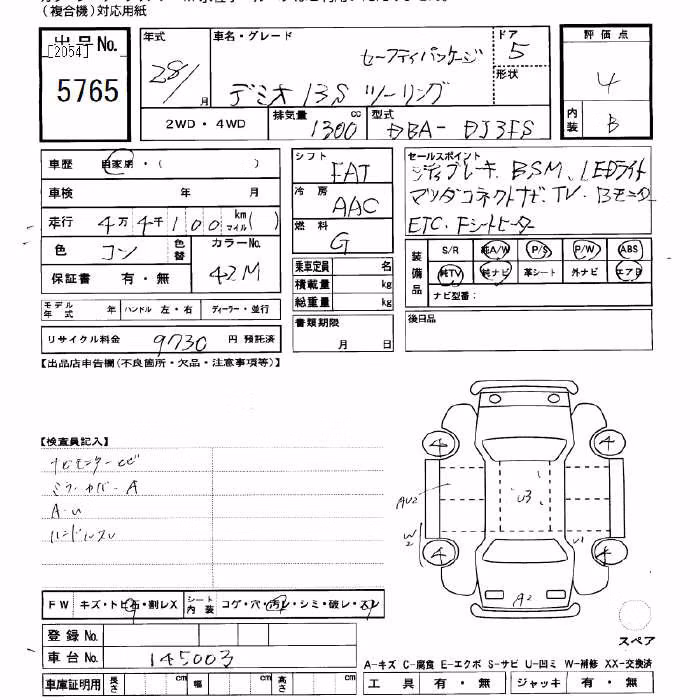 （複合機）対応用紙
出品No.
[2054]
5765
年式
28/
月
車名・グレード
セーフティパッケージ
デミオ 13S ツーリング
ドア
5
形状
評価点
4
内装
B
2WD・4WD
排気量
1300
cc
型式
DBA- DJ3FS
車歴
自家用・（ ）
車検
年 月
走行
4万4千100
km
マイル
( )
色
コン
色替
カラーNo.
42M
保証書 有・無
モデル年式
年
ハンドル 左・右
ディーラー・並行
リサイクル料金
9730
円 預託済
シフト
FAT
冷房
AAC
燃料
G
乗車定員
名
積載量
kg
総重量
kg
書類期限
月 日
セールスポイント
シティブレーキ、BSM、LEDライト
マツダコネクトナビ、TV、Bモニター
ETC、Fシートヒーター
装備品
S/R
純A/W
P/S
P/W
ABS
純TV
純ナビ
革シート
外ナビ
エアB
ナビ型番：
後日品
【出品店申告欄(不良箇所・欠品・注意事項等)】
【検査員記入】
ナビモンターヒビ
ミラーカバーA
A・U
ハンドルスレ
4
4
4
4
AU2
W2
U3
U1
A2
スペア
FW キズ・トビ石・割レX
シート内装
コゲ・穴・汚レ・シミ・破レ・スレ
登録No.
車台No.
145003
車庫証明用
長さ
cm
幅
cm
高さ
cm
A－キズ C－腐食 E－エクボ S－サビ U－凹ミ W－補修 XX－交換済
工具 有・無
ジャッキ 有・無